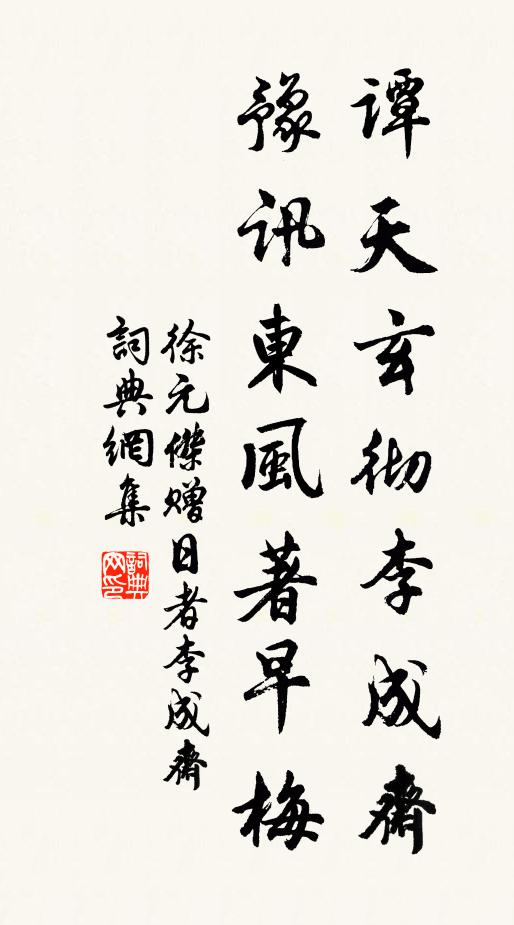 譚天玄彻李成齋
豫訊東風著早梅
徐元傑赠日者李成齋
詞典網集
詞典網印